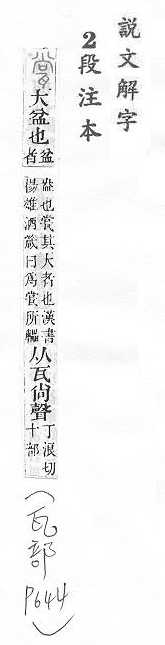 說文解字
2段注本
大盆也
盆
者
盎也瓽其大者也漢書
揚雄酒箴曰為瓽所轠
从瓦尚聲
丁浪切
十部
（瓦部
P644）